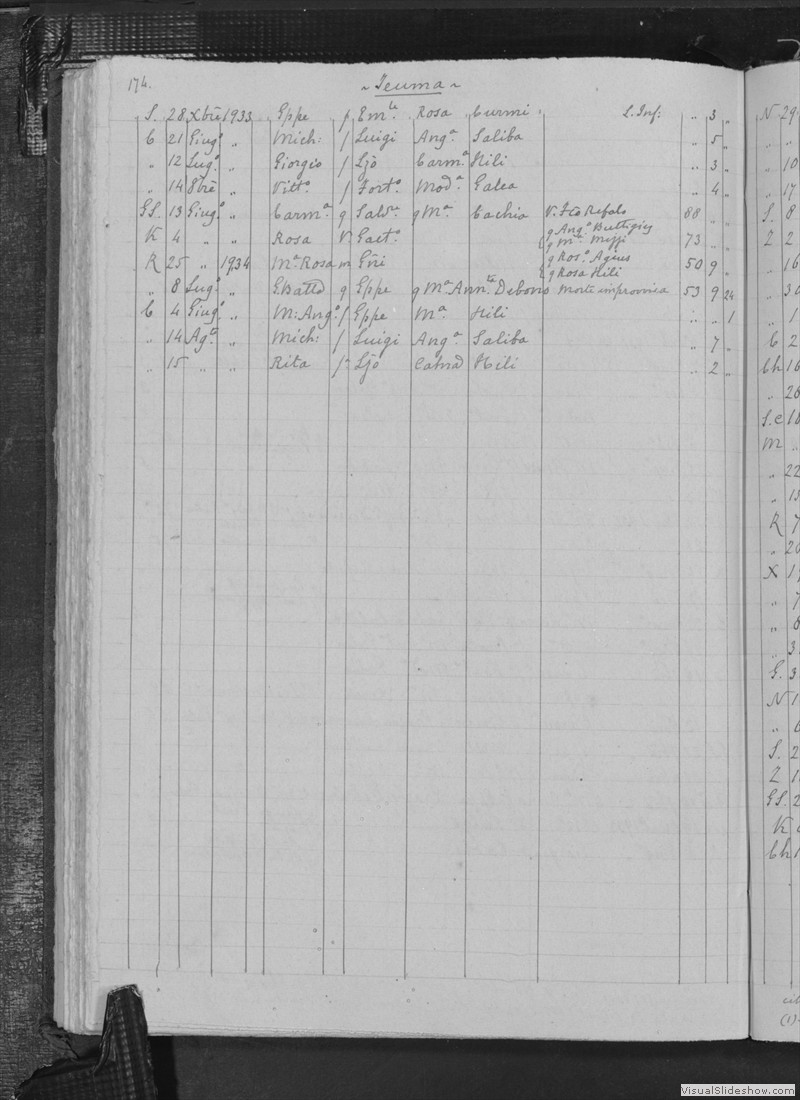 174. ~ Teuma ~
S. 28 Xbre 1933 Gppe f Em.le Rosa Curmi L. Inf: " 3 "
C 21 Giug.o " Mich: f Luigi Ang.a Saliba " 5 "
" 12 Lug.o " Giorgio f Ljo Carm.a Hili " 3 "
" 14 8bre " Vitt.o f Fort.o Mod.a Galea " 4 "
GS. 13 Giug.o " Carm.a q Salv.re q M.a Cachia V. Refalo 88 " "
q Ang.o Buttigieg
K 4 " " Rosa V. Gaet.o q M.a 73 " "
R 25 " 1934 M.a Rosa m q Ros.o Agius 50 9 "
q Rosa Hili
" 8 Lug.o " G Batta q Gppe q M.a Debono Morte improvvisa 53 9 24
C 4 Giug.o " M: Ang.o f Gppe M.a Hili " " 1
" 14 Ag.to " Mich: f Luigi Ang.a Saliba " 7 "
" 15 " " Rita f Ljo Hili " 2 "
N 29
" "
" 10
" 17
S. 8
Z 2
" 16
" 30
" 1
C 2
Ch 16
" 20
S.c 10
M "
" 22
" 15
R 7
" 20
X 1
" 7
" 8
" 3
G. 3
N 1
" 6
S. 2
Z 1
GS. 2
K
Ch 1
(1)
VisualSlideshow.com